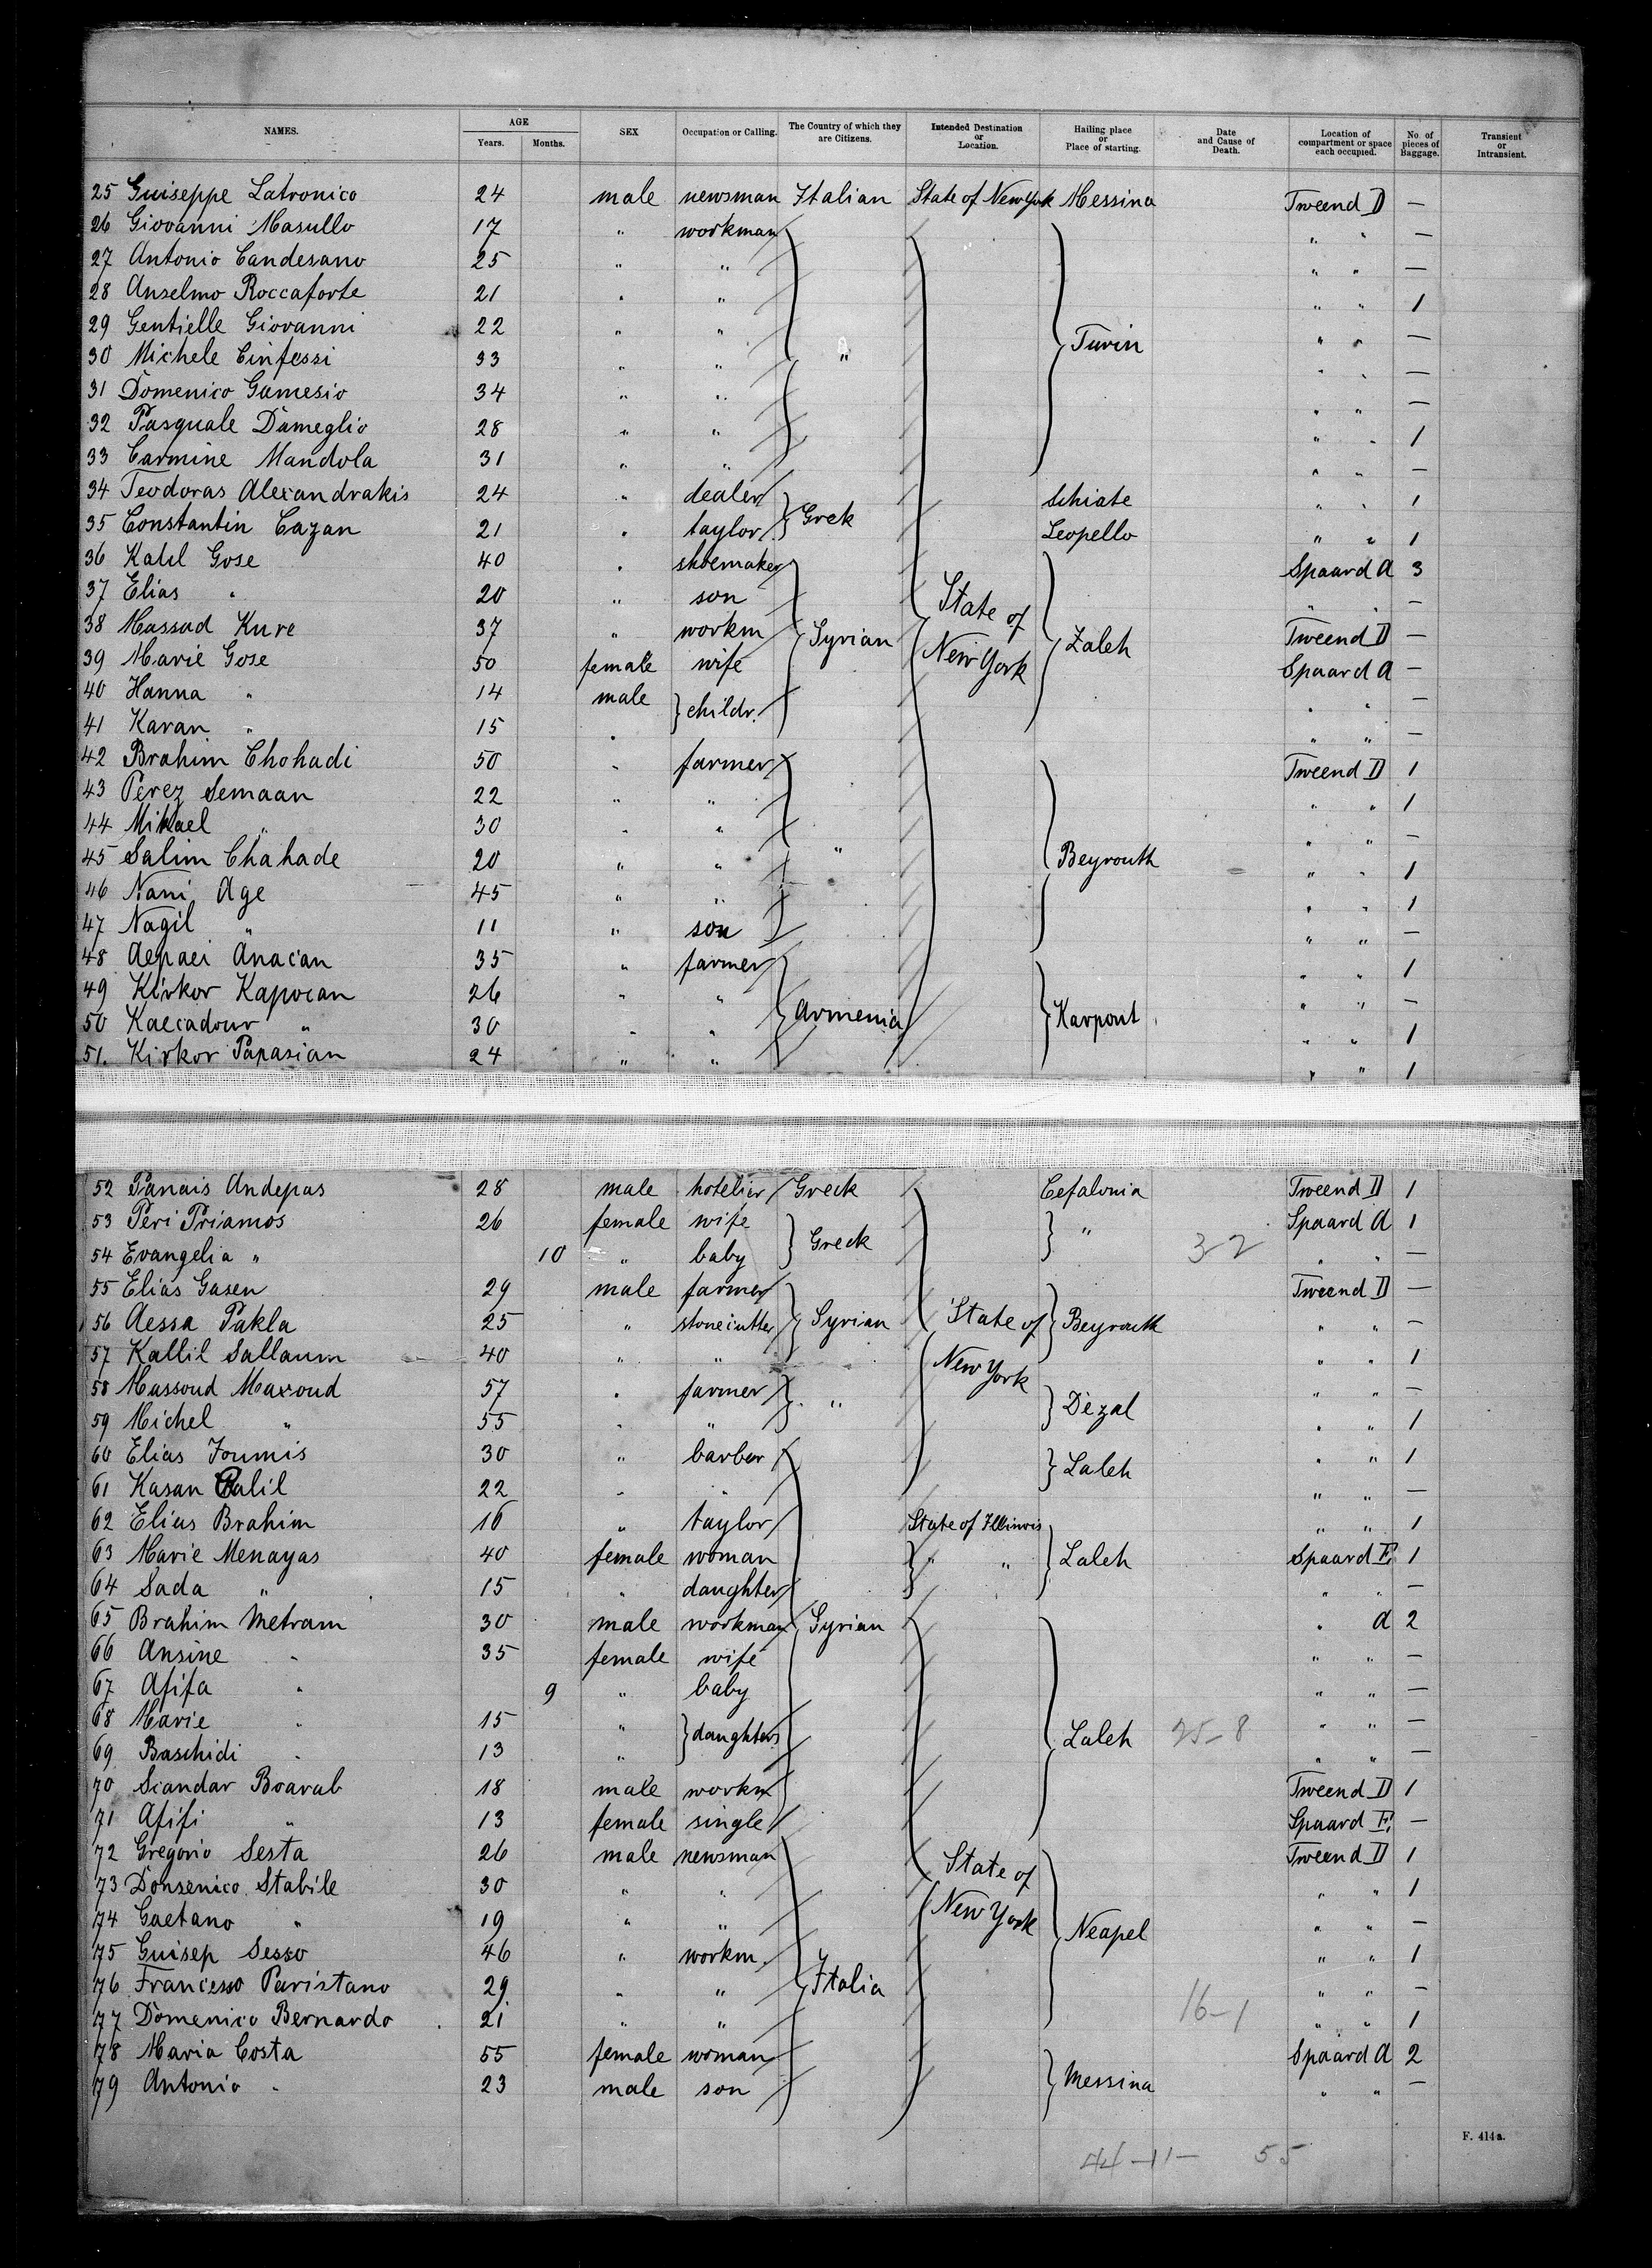 NAMES. AGE Years. Months. SEX Occupation or Calling. The Country of which they are Citizens. Intended Destination or Location. Hailing place or Place of starting. Date and Cause of Death. Location of compartment or space each occupied. No. of pieces of Baggage. Transient or Intransient.
25 Guiseppe Latronico 24 male newsman Italian State of New York Messina Tweend D —
26 Giovanni Masullo 17 " workman " " —
27 Antonio Candesano 25 " " " " —
28 Anselmo Roccaforte 21 " " " " 1
29 Gentielle Giovanni 22 " " Turin " " —
30 Michele Cinfessi 33 " " " " " —
31 Domenico Gamesio 34 " " " " —
32 Pasquale Dameglio 28 " " " " 1
33 Carmine Mandola 31 " " " " —
34 Teodoras Alexandrakis 24 " dealer Grek Schiate " " 1
35 Constantin Cazan 21 " taylor Leopello " " 1
36 Kalil Gose 40 " shoemaker Spaard A 3
37 Elias " 20 " son State of " " —
38 Massad Kure 37 " workm Syrian New York Zaleh Tweend D —
39 Marie Gose 50 female wife Spaard A —
40 Hanna " 14 male childr. " " —
41 Karan " 15 " " " —
42 Brahim Chohadi 50 " farmer Tweend D 1
43 Perez Semaan 22 " " " " 1
44 Mikael " 30 " " " " —
45 Salim Chahade 20 " " " Beyrouth " " 1
46 Nani Age 45 " " " " 1
47 Nagil " 11 " son " " —
48 Aepaei Anacan 35 " farmer " " 1
49 Kirkor Kapocan 26 " " Armenia Karpout " " —
50 Kaecadour " 30 " " " " 1
51. Kirkor Papasian 24 " " " " 1
52 Panais Andepas 28 male hotelier Greck Cefalonia Tweend D 1
53 Peri Priamos 26 female wife Greck " Spaard A 1
54 Evangelia " 10 " baby 3-2 " " —
55 Elias Gasen 29 male farmer Tweend D —
56 Aessa Pakla 25 " stonecutter Syrian State of Beyrouth " " —
57 Kallil Sallaum 40 " " New York " " 1
58 Massoud Maxoud 57 " farmer " Dezal " " —
59 Michel " 55 " " " " 1
60 Elias Joumis 30 " barber Laleh " " 1
61 Kasan Calil 22 " " " " —
62 Elias Brahim 16 " taylor State of Illinois " " 1
63 Marie Menayas 40 female woman " " Laleh Spaard E. 1
64 Sada " 15 " daughter " " —
65 Brahim Metram 30 male workman Syrian " A 2
66 Ansine " 35 female wife " " —
67 Afifa " 9 " baby " " —
68 Marie " 15 " daughters Laleh 25-8 " " —
69 Baschidi " 13 " " " —
70 Scandar Boarab 18 male workm Tweend D 1
71 Afifi " 13 female single Spaard E. —
72 Gregorio Sesta 26 male newsman State of Tweend D 1
73 Donsenico Stabile 30 " " New York " " 1
74 Gaetano " 19 " " Neapel " " —
75 Guisep Sesso 46 " workm. " " 1
76 Francesso Paristano 29 " " Italia " " —
77 Domenico Bernardo 21 " " 16-1 " " 1
78 Maria Costa 55 female woman Messina Spaard A 2
79 Antonio " 23 male son " " —
F. 414a.
44-11- 55